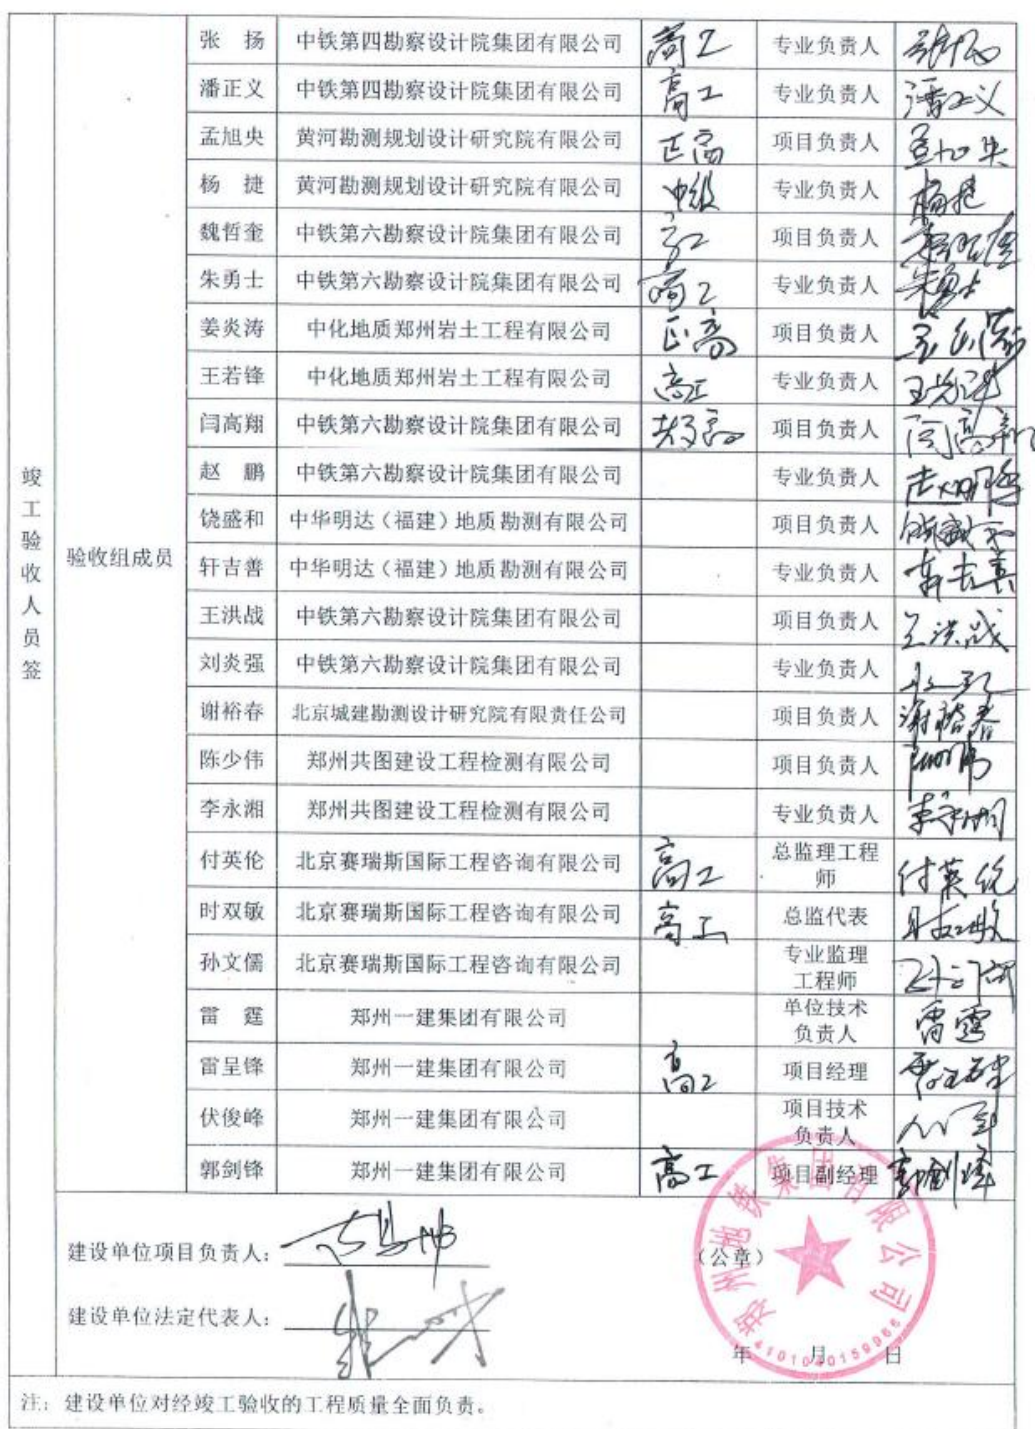 竣工验收人员签
验收组成员
张 扬 中铁第四勘察设计院集团有限公司 高工 专业负责人 张扬
潘正义 中铁第四勘察设计院集团有限公司 高工 专业负责人 潘正义
孟旭央 黄河勘测规划设计研究院有限公司 正高 项目负责人 孟旭央
杨 捷 黄河勘测规划设计研究院有限公司 中级 专业负责人 杨捷
魏哲奎 中铁第六勘察设计院集团有限公司 高工 项目负责人
朱勇士 中铁第六勘察设计院集团有限公司 高工 专业负责人 朱勇士
姜炎涛 中化地质郑州岩土工程有限公司 正高 项目负责人 姜炎涛
王若锋 中化地质郑州岩土工程有限公司 高工 专业负责人
闫高翔 中铁第六勘察设计院集团有限公司 教高 项目负责人 闫高翔
赵 鹏 中铁第六勘察设计院集团有限公司 专业负责人
饶盛和 中华明达（福建）地质勘测有限公司 项目负责人
轩吉善 中华明达（福建）地质勘测有限公司 专业负责人 轩吉善
王洪战 中铁第六勘察设计院集团有限公司 项目负责人 王洪战
刘炎强 中铁第六勘察设计院集团有限公司 专业负责人
谢裕春 北京城建勘测设计研究院有限责任公司 项目负责人 谢裕春
陈少伟 郑州共图建设工程检测有限公司 项目负责人
李永湘 郑州共图建设工程检测有限公司 专业负责人 李永湘
付英伦 北京赛瑞斯国际工程咨询有限公司 高工 总监理工程师 付英伦
时双敏 北京赛瑞斯国际工程咨询有限公司 高工 总监代表
孙文儒 北京赛瑞斯国际工程咨询有限公司 专业监理工程师
雷 霆 郑州一建集团有限公司 单位技术负责人 雷霆
雷呈锋 郑州一建集团有限公司 高工 项目经理
伏俊峰 郑州一建集团有限公司 项目技术负责人
郭剑锋 郑州一建集团有限公司 高工 项目副经理 郭剑锋
建设单位项目负责人：
（公章）
郑州地铁集团有限公司
4101040159966
建设单位法定代表人：
年 月 日
注：建设单位对经竣工验收的工程质量全面负责。